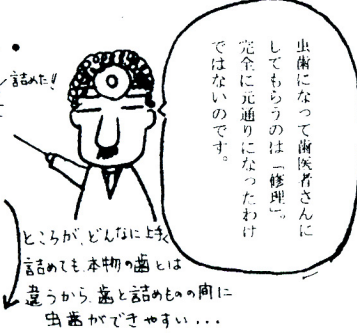 虫歯になって歯医者さんに
してもらうのは「修理」。
完全に元通りになったわけ
ではないのです。
詰めた!!
ところが、どんなに上手く
詰めても、本物の歯とは
違うから、歯と詰めものの間に
虫歯ができやすい...